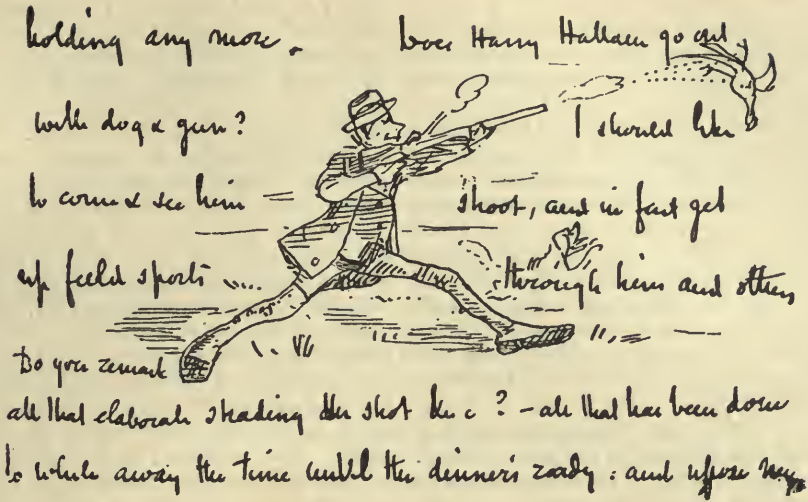 holding any more. Does Harry Hallam go out
with dog & gun? I should like
to come & see him shoot, and in fact get
up field sports through him and others
Do you remark
all that elaborate shading the shot &c ? - all that has been done
to while away the time until the dinner's ready : and upon my